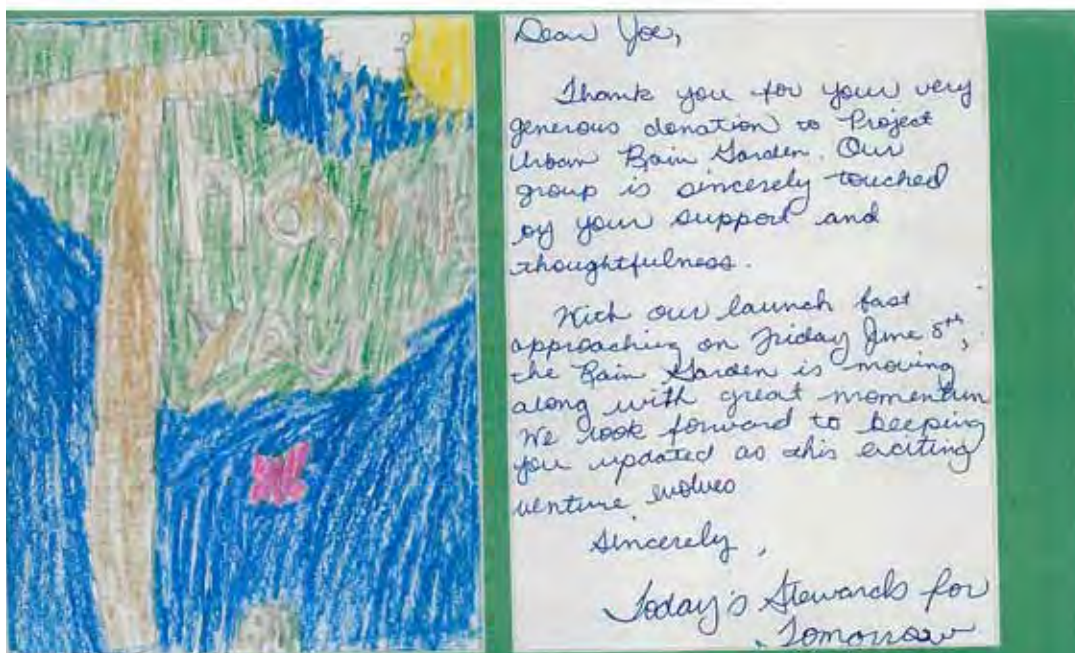 Thank
you
Dear Joe,
Thank you for your very
generous donation to Project
Urban Rain Garden. Our
group is sincerely touched
by your support and
thoughtfulness.
With our launch fast
approaching on Friday June 8th,
the Rain Garden is moving
along with great momentum
We look forward to keeping
you updated as this exciting
venture evolves
Sincerely,
Today's Stewards for
Tomorrow